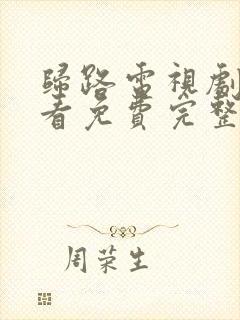 歸路電視劇
看免費完整
周荣生